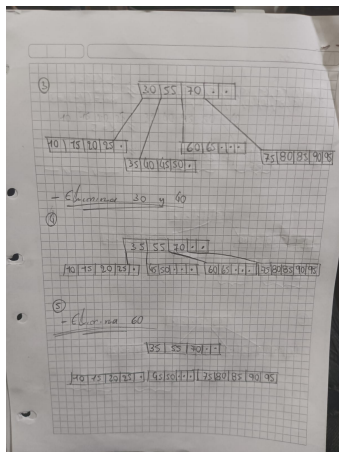 3
30 | 55 | 70 | · | ·
10 | 15 | 20 | 25 | ·
60 | 65 | · | · | ·
35 | 40 | 45 | 50 | ·
75 | 80 | 85 | 90 | 95
- Eliminar 30 y 40
4
35 | 55 | 70 | · | ·
10 | 15 | 20 | 25 | · 45 | 50 | · | · | · 60 | 65 | · | · | · 75 | 80 | 85 | 90 | 95
5
- Eliminar 60
35 | 55 | 70 | · | ·
10 | 15 | 20 | 25 | · 45 | 50 | · | · | · 75 | 80 | 85 | 90 | 95